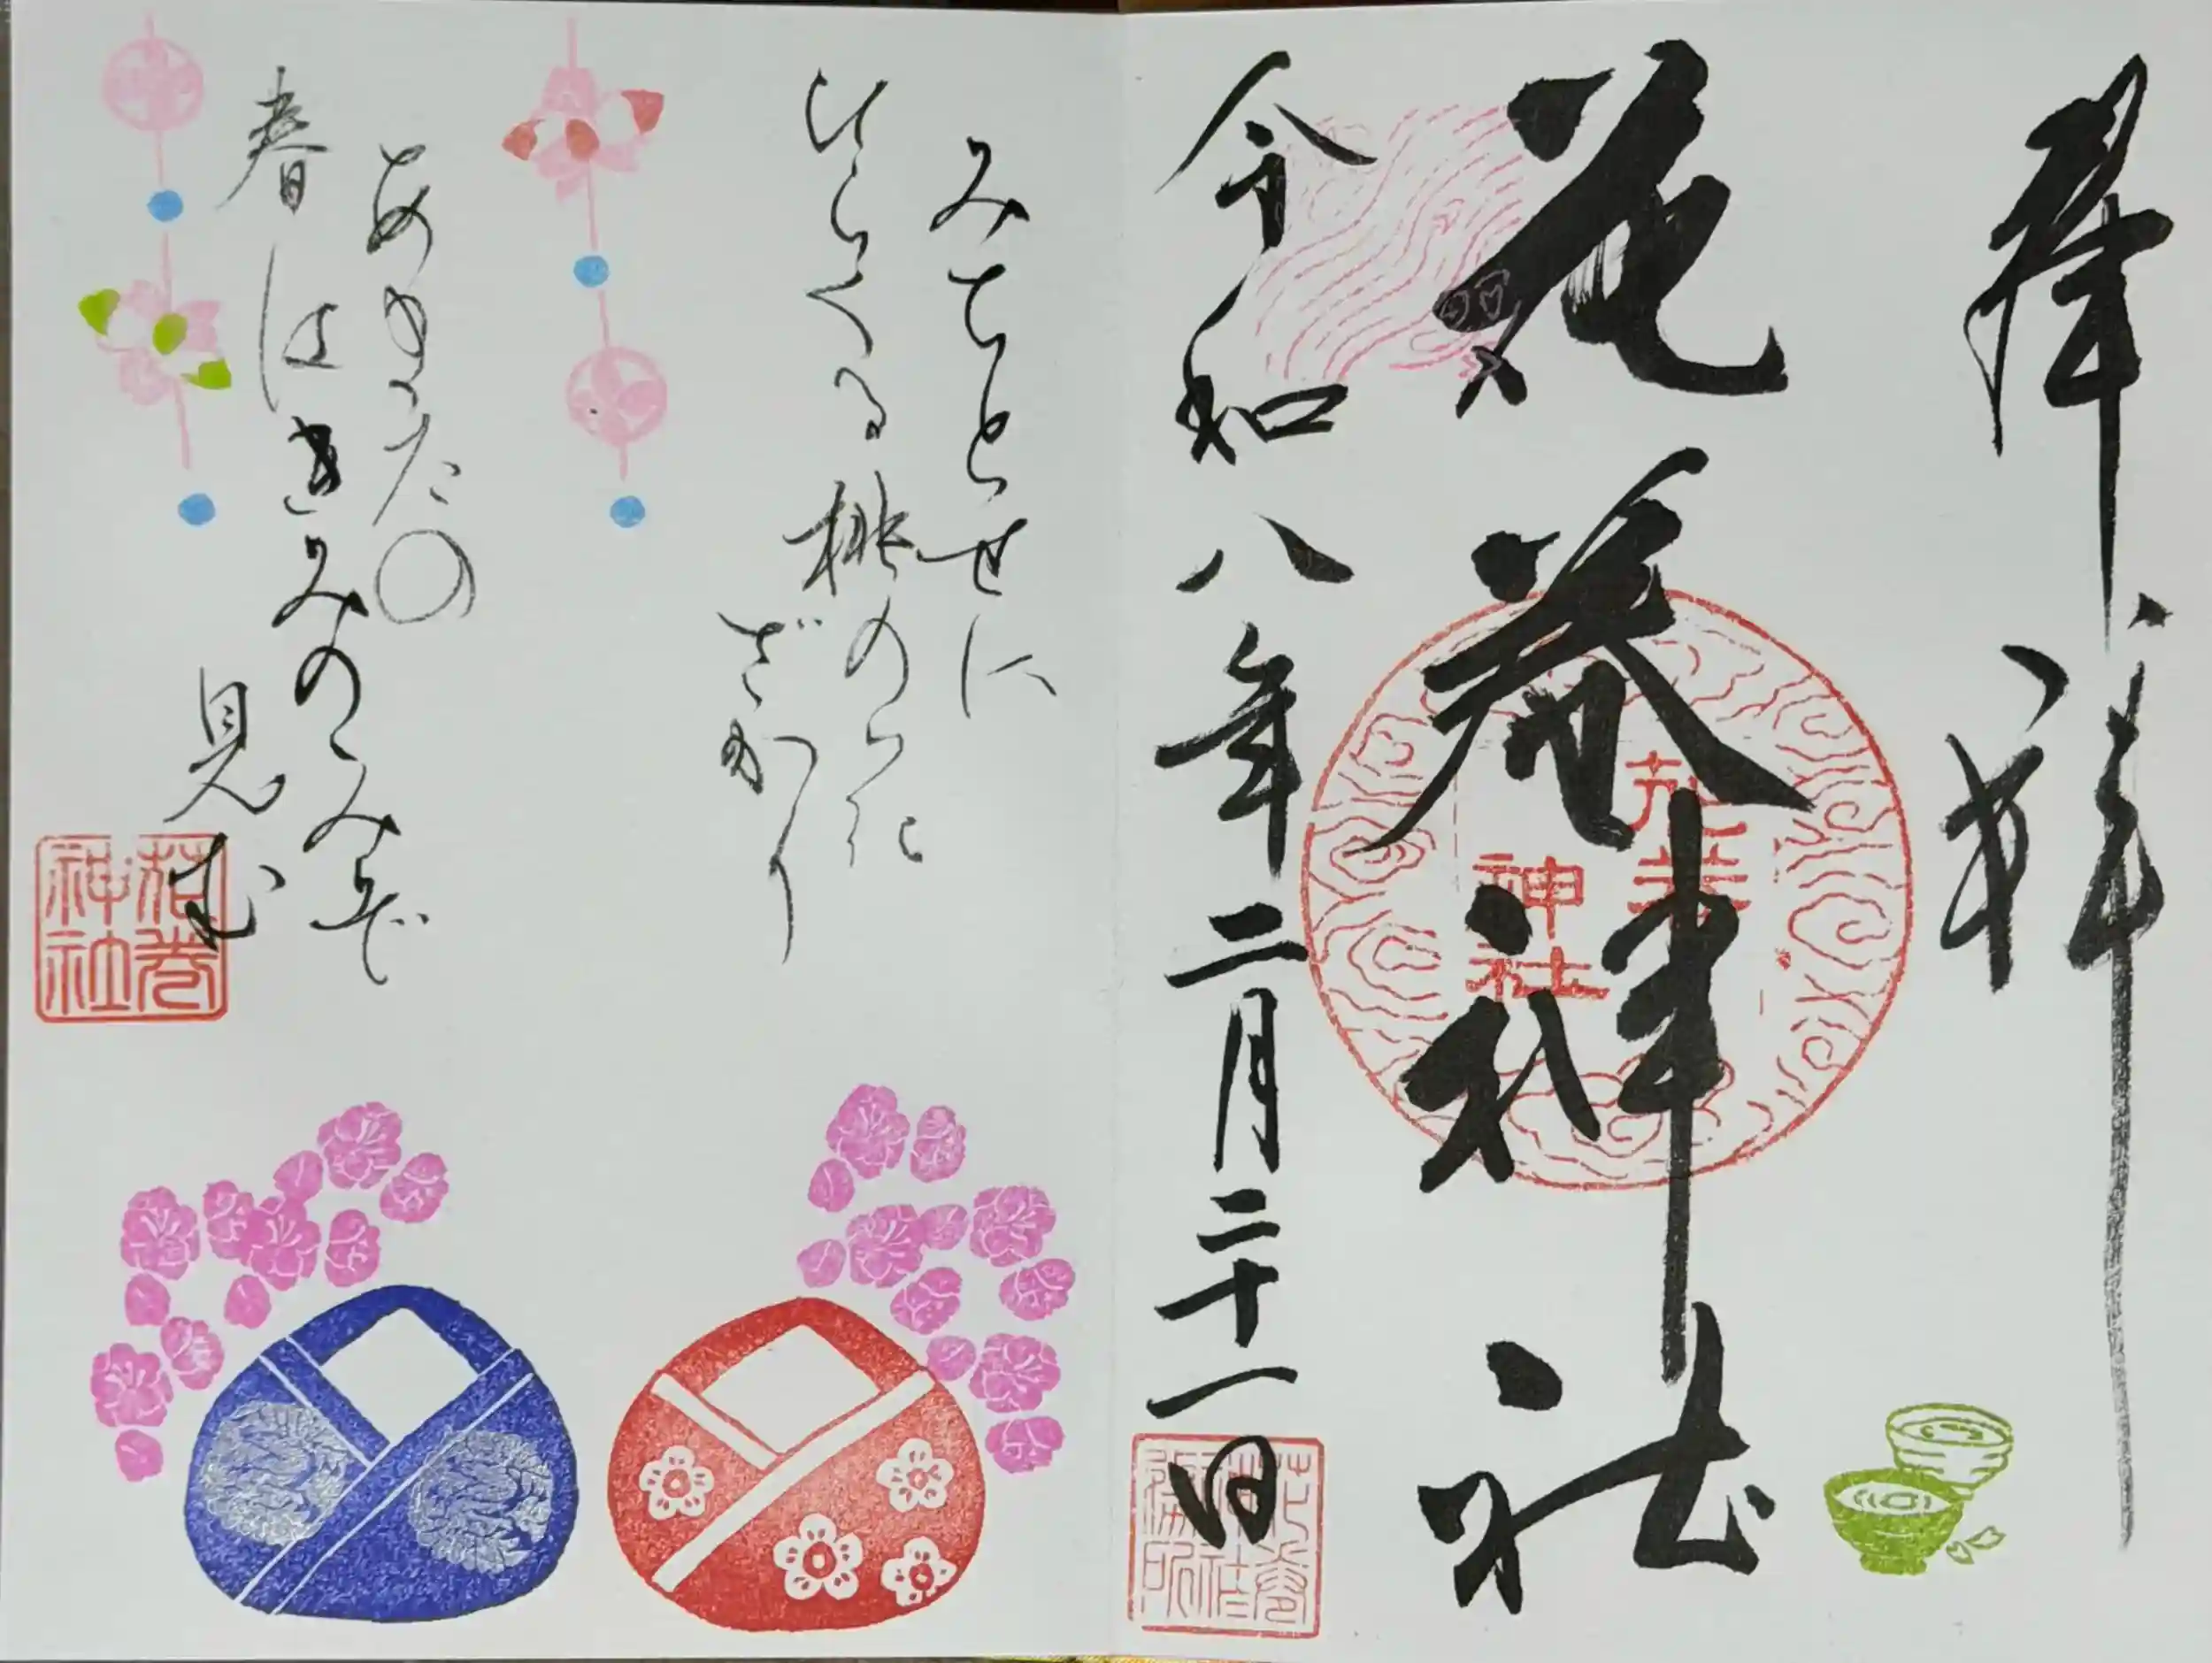 奉拝
花巻神社
令和八年二月二十一日
みちとせに
ひらくる桃のはな
ざかり
あまたの
春はきみのみぞ
見む
花巻
神社
花巻
神社